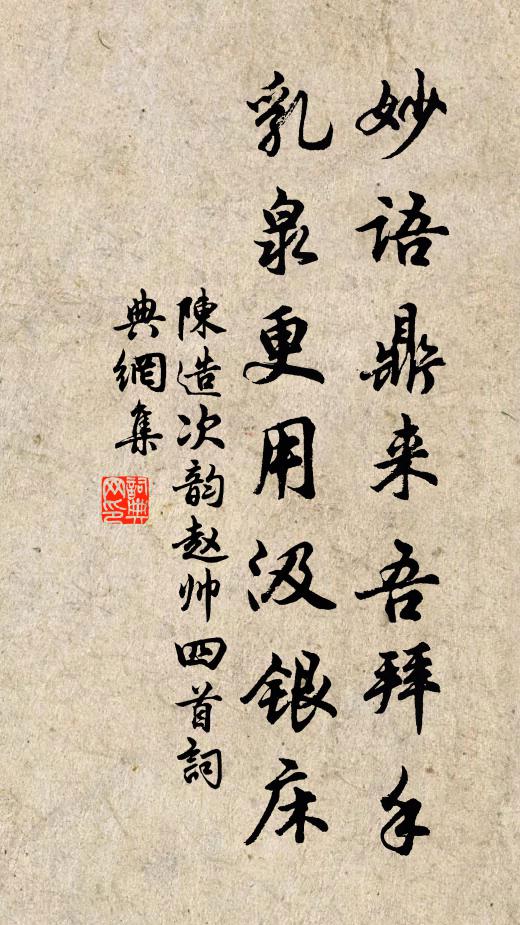 妙语鼎来吾拜手
乳泉更用汲银床
陳造次韵赵帅四首詞
典網集
詞典网印